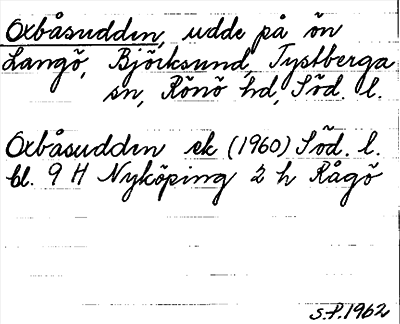 Oxbåsudden, udde på ön
Långö, Björksund, Tystberga
sn, Rönö hd, Söd. l.
Oxbåsudden ek (1960) Söd. l.
bl. 9 H Nyköping 2 h Rågö
S.P. 1962